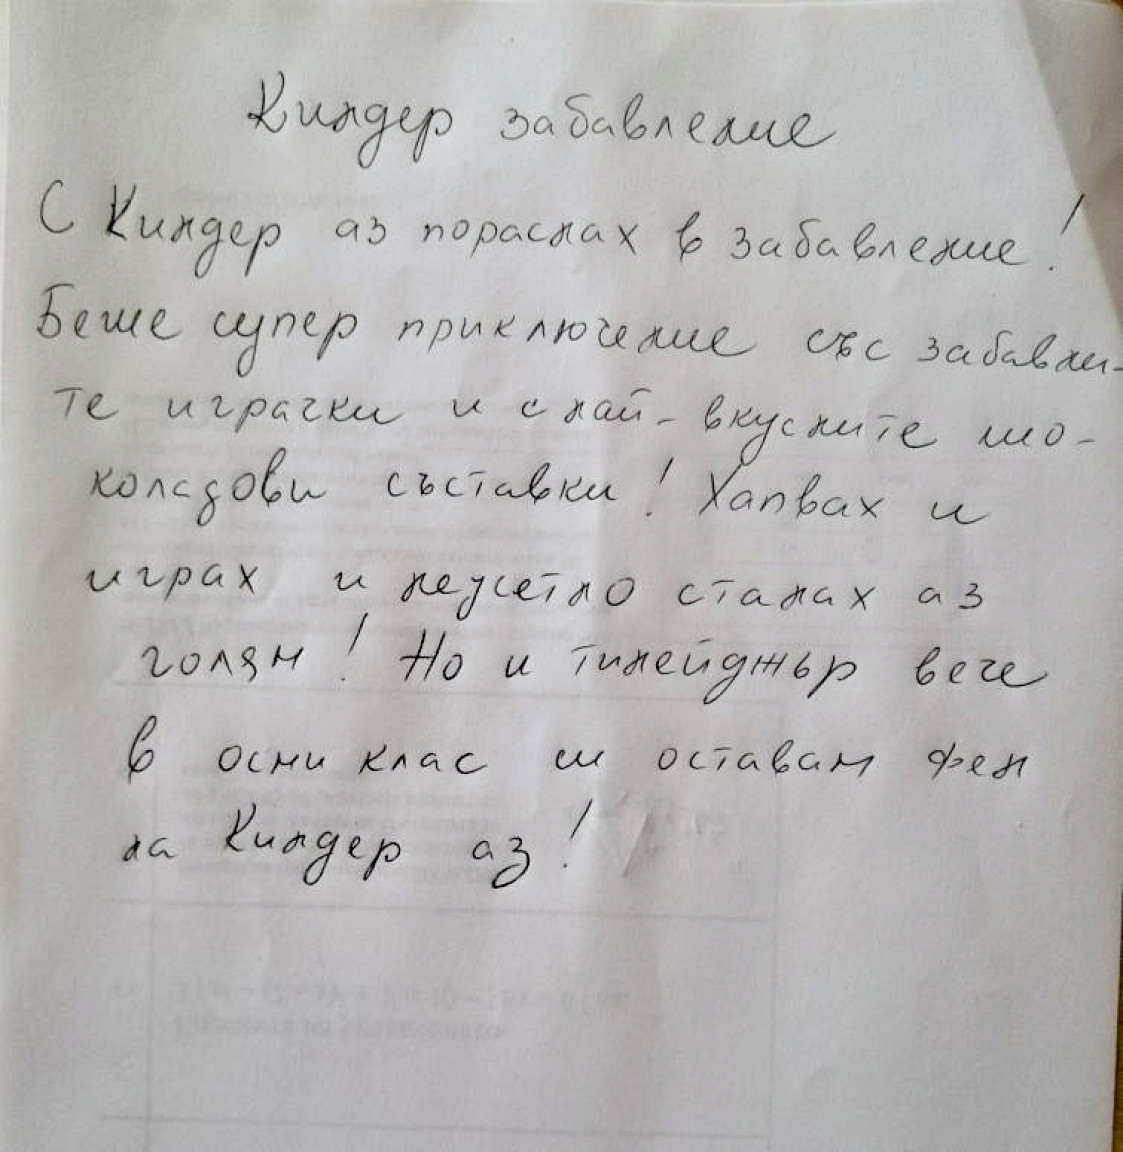 Киндер забавление
С Киндер аз пораснах в забавление!
Беше супер приключение със забавни-
те играчки и с най-вкусните шо-
коладови съставки! Хапвах и
играх и неусетно станах аз
голям! Но и тинейджър вече
в осми клас ш оставам фен
на Киндер аз!